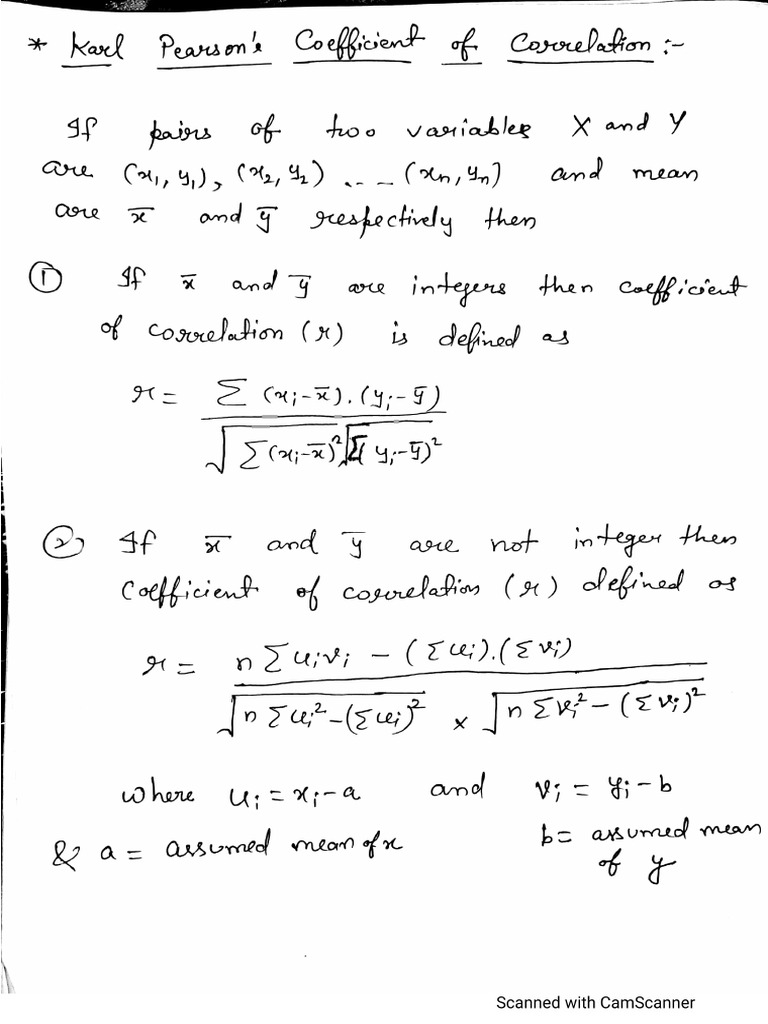 * Karl Pearson's Coefficient of Correlation :-
If pairs of two variables X and Y
are (x₁, y₁), (x₂, y₂) ... (xₙ, yₙ) and mean
are x̄ and ȳ respectively then
① If x̄ and ȳ are integers then coefficient
of correlation (r) is defined as
r = Σ (xᵢ-x̄).(yᵢ-ȳ) / √Σ(xᵢ-x̄)² √Σ(yᵢ-ȳ)²
② If x̄ and ȳ are not integer then
Coefficient of correlation (r) defined as
r = n Σuᵢvᵢ - (Σuᵢ).(Σvᵢ) / √nΣuᵢ²-(Σuᵢ)² × √nΣvᵢ²-(Σvᵢ)²
where uᵢ = xᵢ-a and vᵢ = yᵢ-b
& a = assumed mean of x b = assumed mean
of y
Scanned with CamScanner